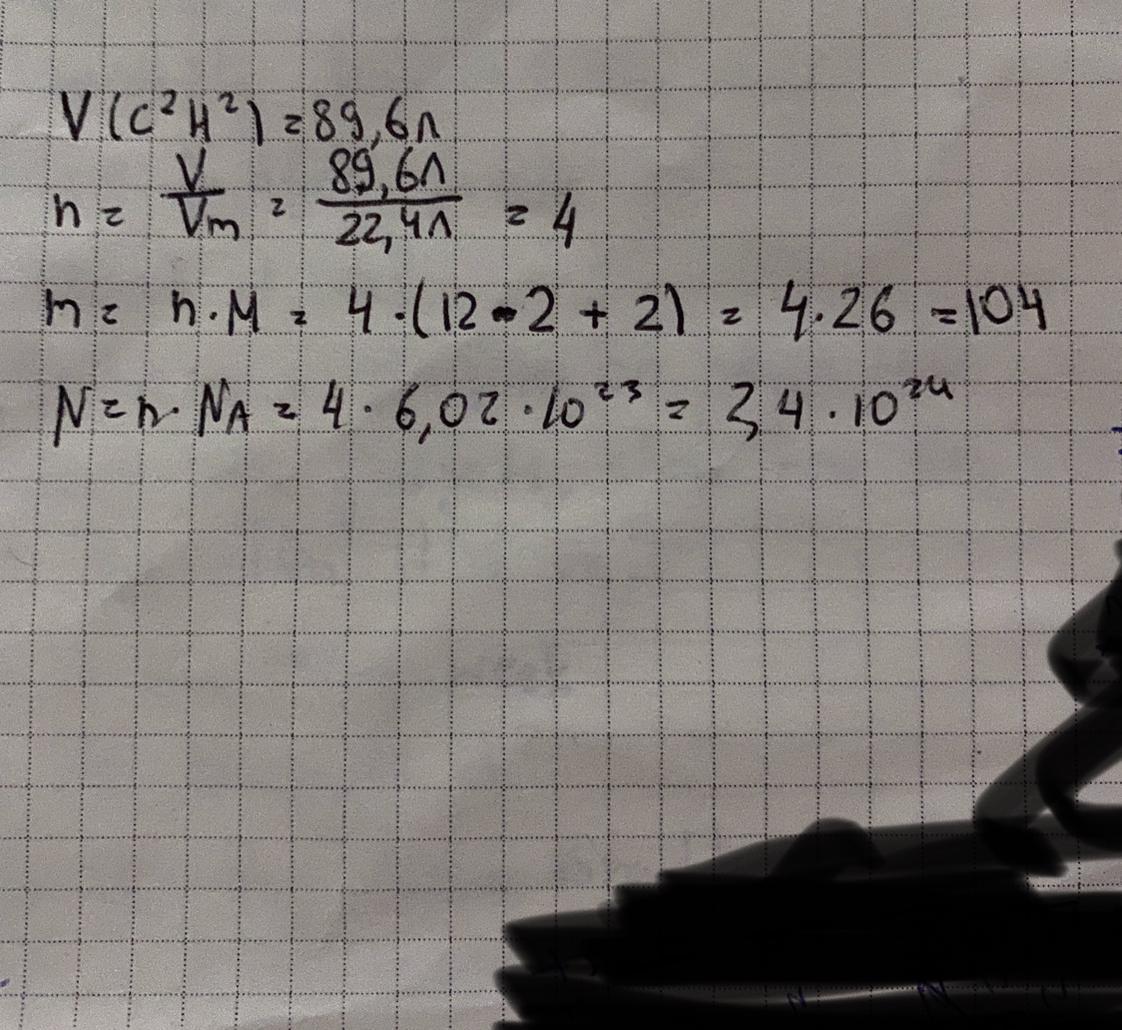 V(C²H²) = 89,6л
n = V/Vm = 89,6л/22,4л = 4
m = n·M = 4·(12·2 + 2) = 4·26 = 104
N = n·NA = 4·6,02·10²³ = 2,4·10²⁴